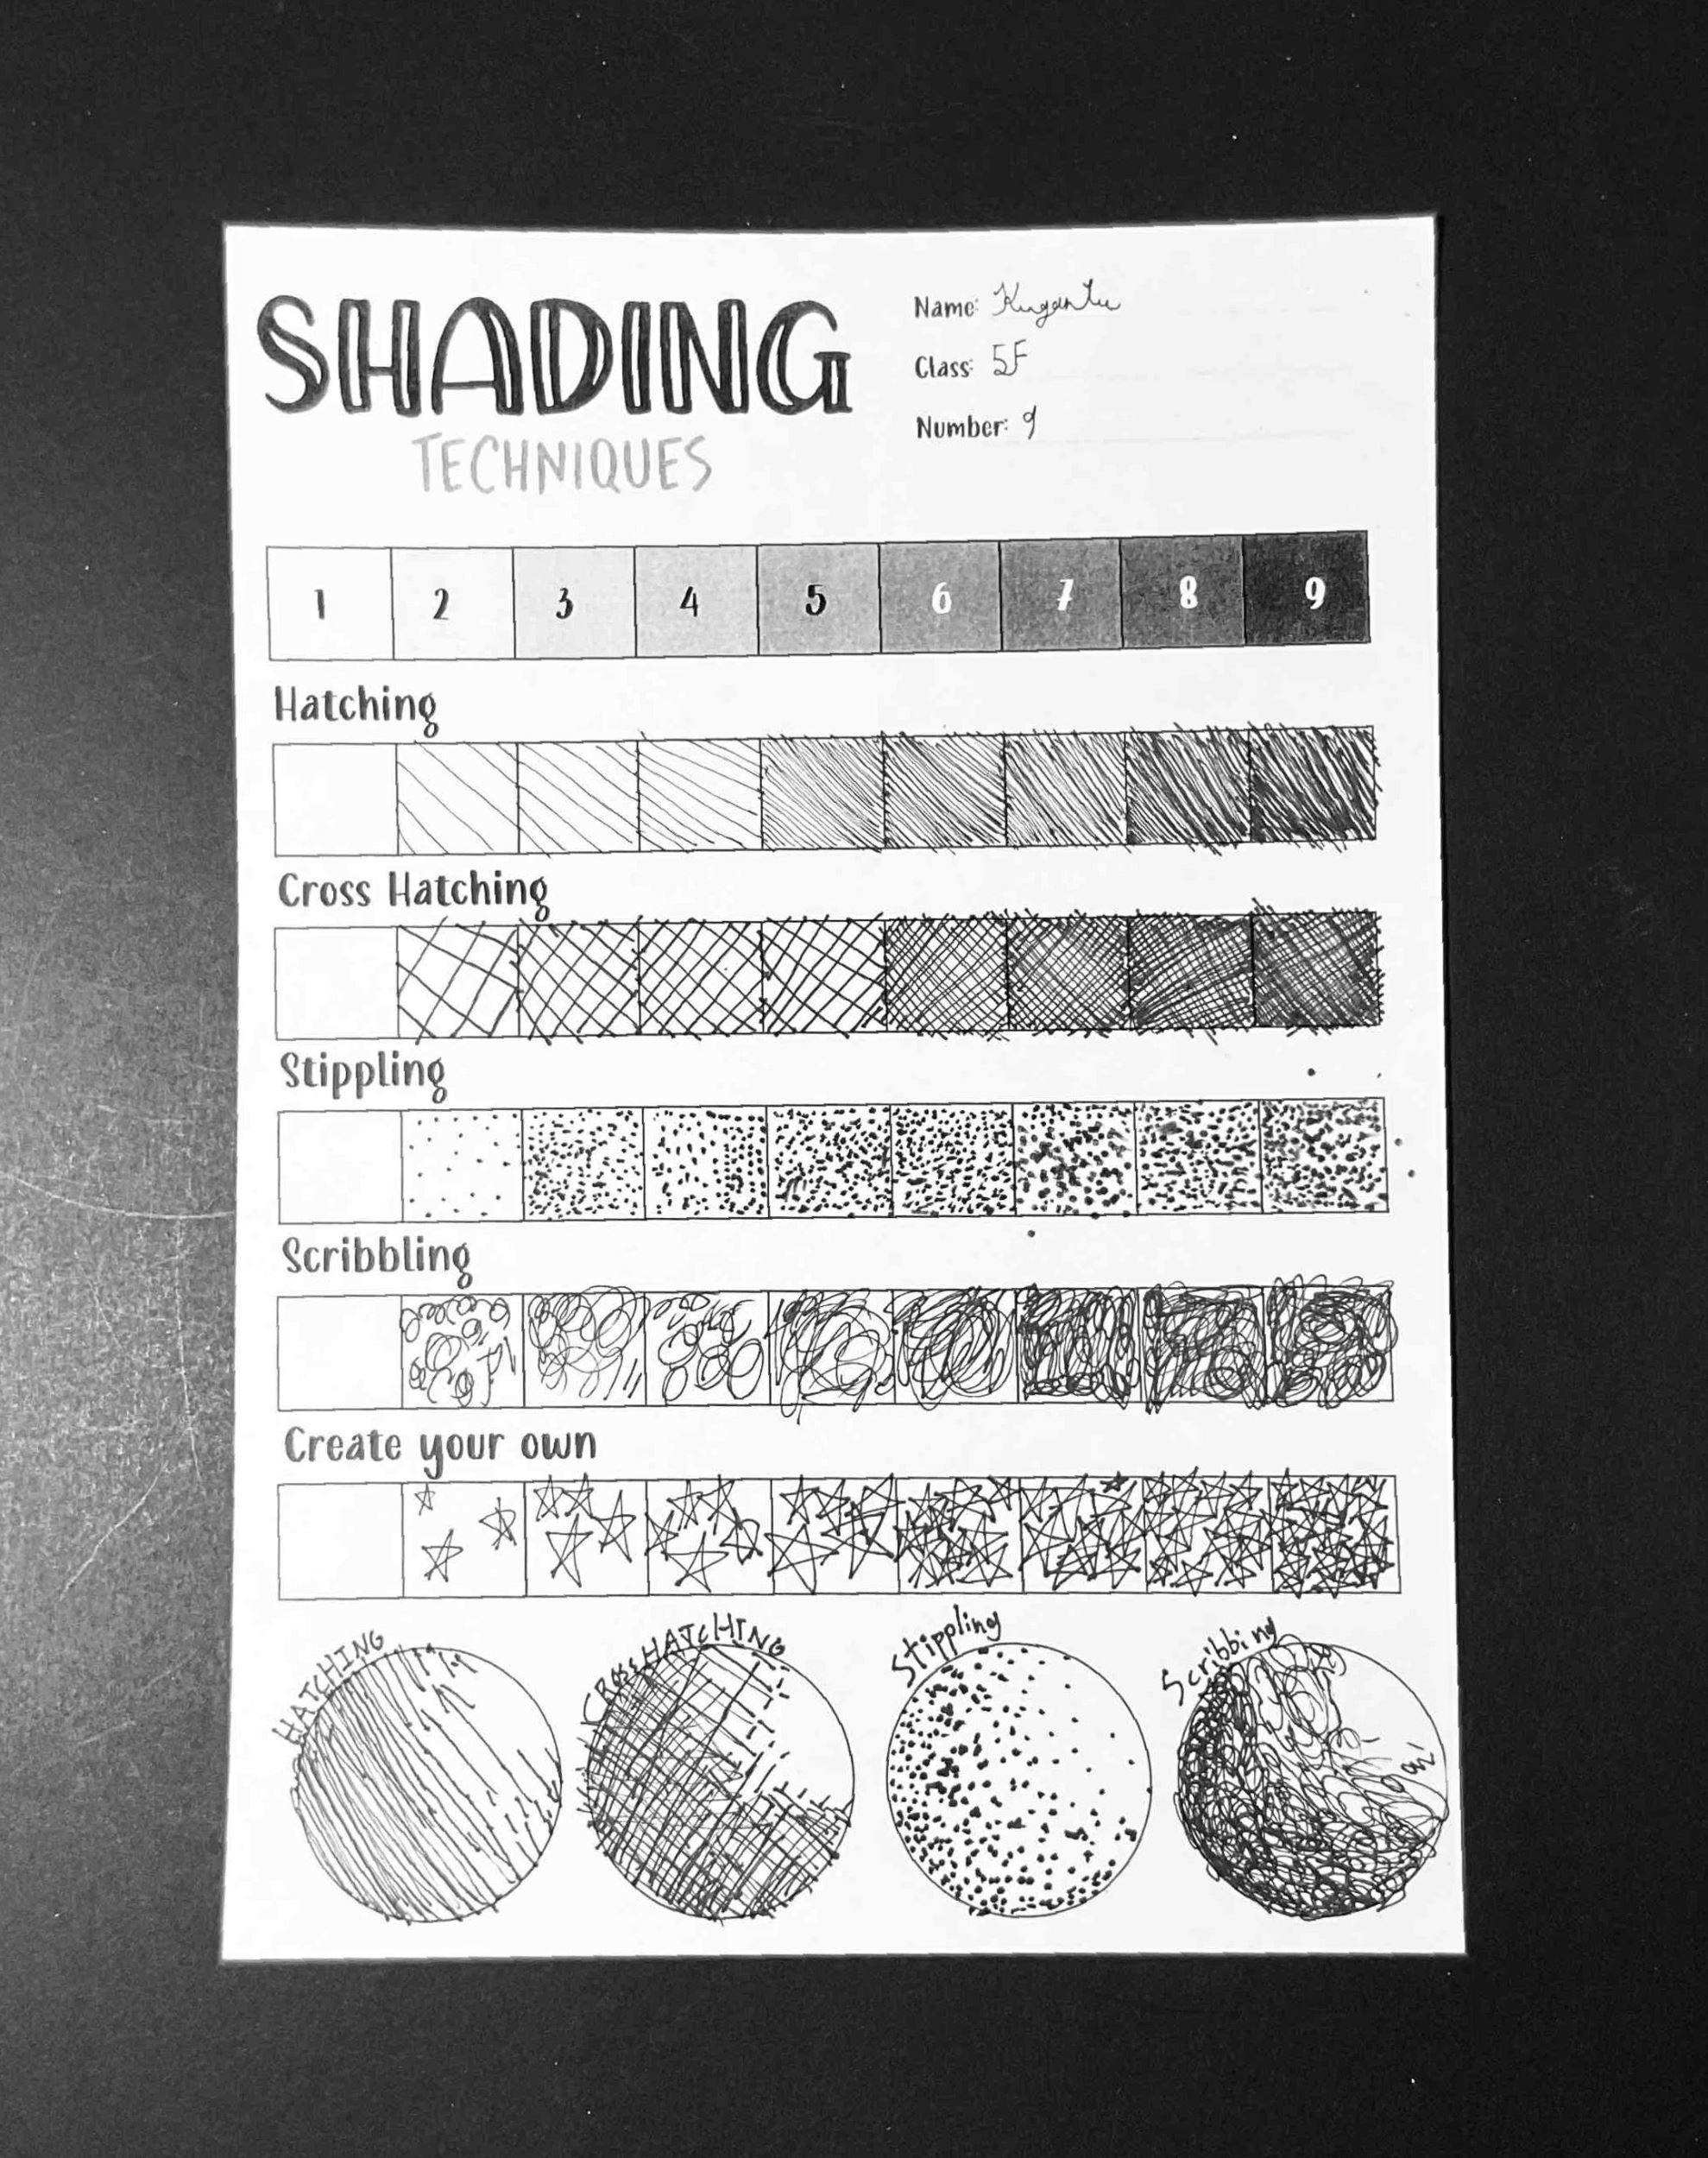 SHADING
TECHNIQUES
Name:
Class: 5F
Number: 9
1 2 3 4 5 6 7 8 9
Hatching
Cross Hatching
Stippling
Scribbling
Create your own
HATCHING
CROSSHATCHING
Stippling
Scribbing